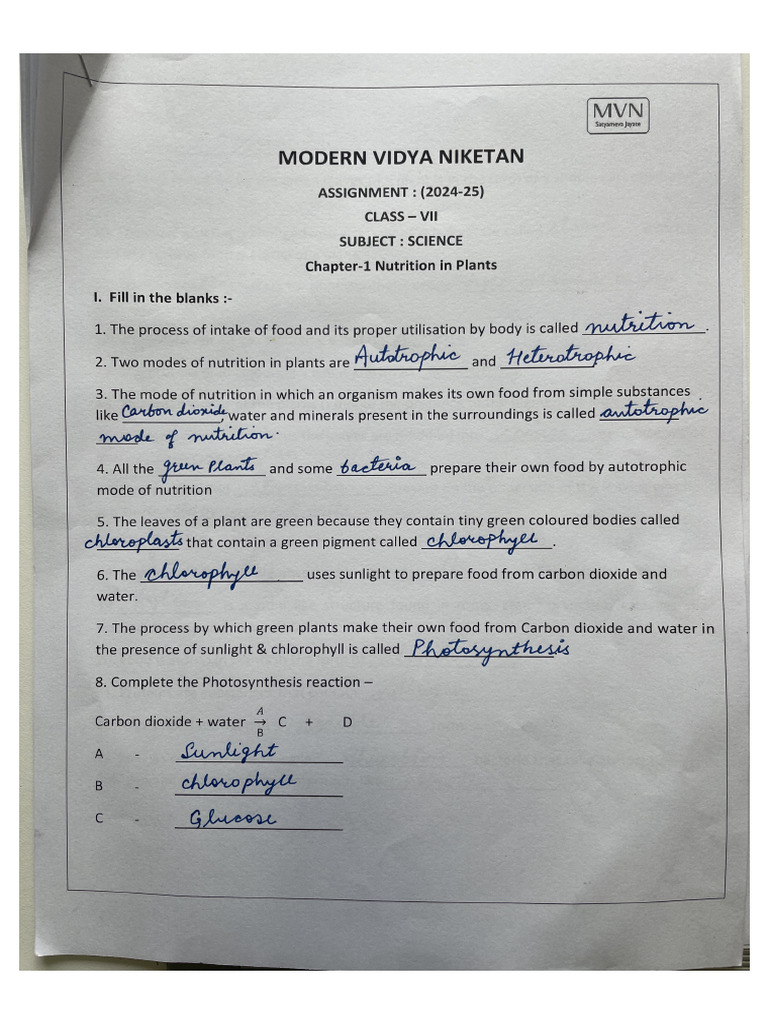 MVN
Satyameva Jayate
MODERN VIDYA NIKETAN
ASSIGNMENT : (2024-25)
CLASS – VII
SUBJECT : SCIENCE
Chapter-1 Nutrition in Plants
I. Fill in the blanks :-
1. The process of intake of food and its proper utilisation by body is called nutrition.
2. Two modes of nutrition in plants are Autotrophic and Heterotrophic
3. The mode of nutrition in which an organism makes its own food from simple substances
like Carbon dioxide, water and minerals present in the surroundings is called autotrophic
mode of nutrition.
4. All the green Plants and some bacteria prepare their own food by autotrophic
mode of nutrition
5. The leaves of a plant are green because they contain tiny green coloured bodies called
chloroplasts that contain a green pigment called chlorophyll.
6. The chlorophyll uses sunlight to prepare food from carbon dioxide and
water.
7. The process by which green plants make their own food from Carbon dioxide and water in
the presence of sunlight & chlorophyll is called Photosynthesis
8. Complete the Photosynthesis reaction –
A
Carbon dioxide + water → C + D
B
A - Sunlight
B - chlorophyll
C - Glucose